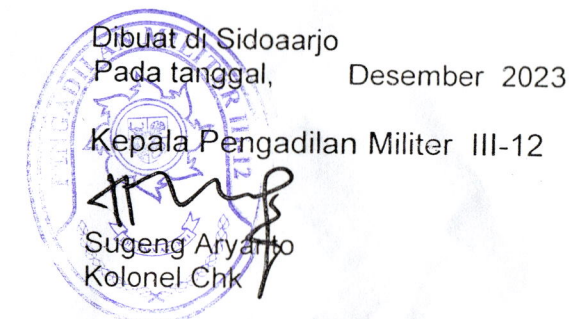 Dibuat di Sidoaarjo
Pada tanggal, Desember 2023
Kepala Pengadilan Militer III-12
PENGADILAN MILITER III-12
Sugeng Aryanto
Kolonel Chk